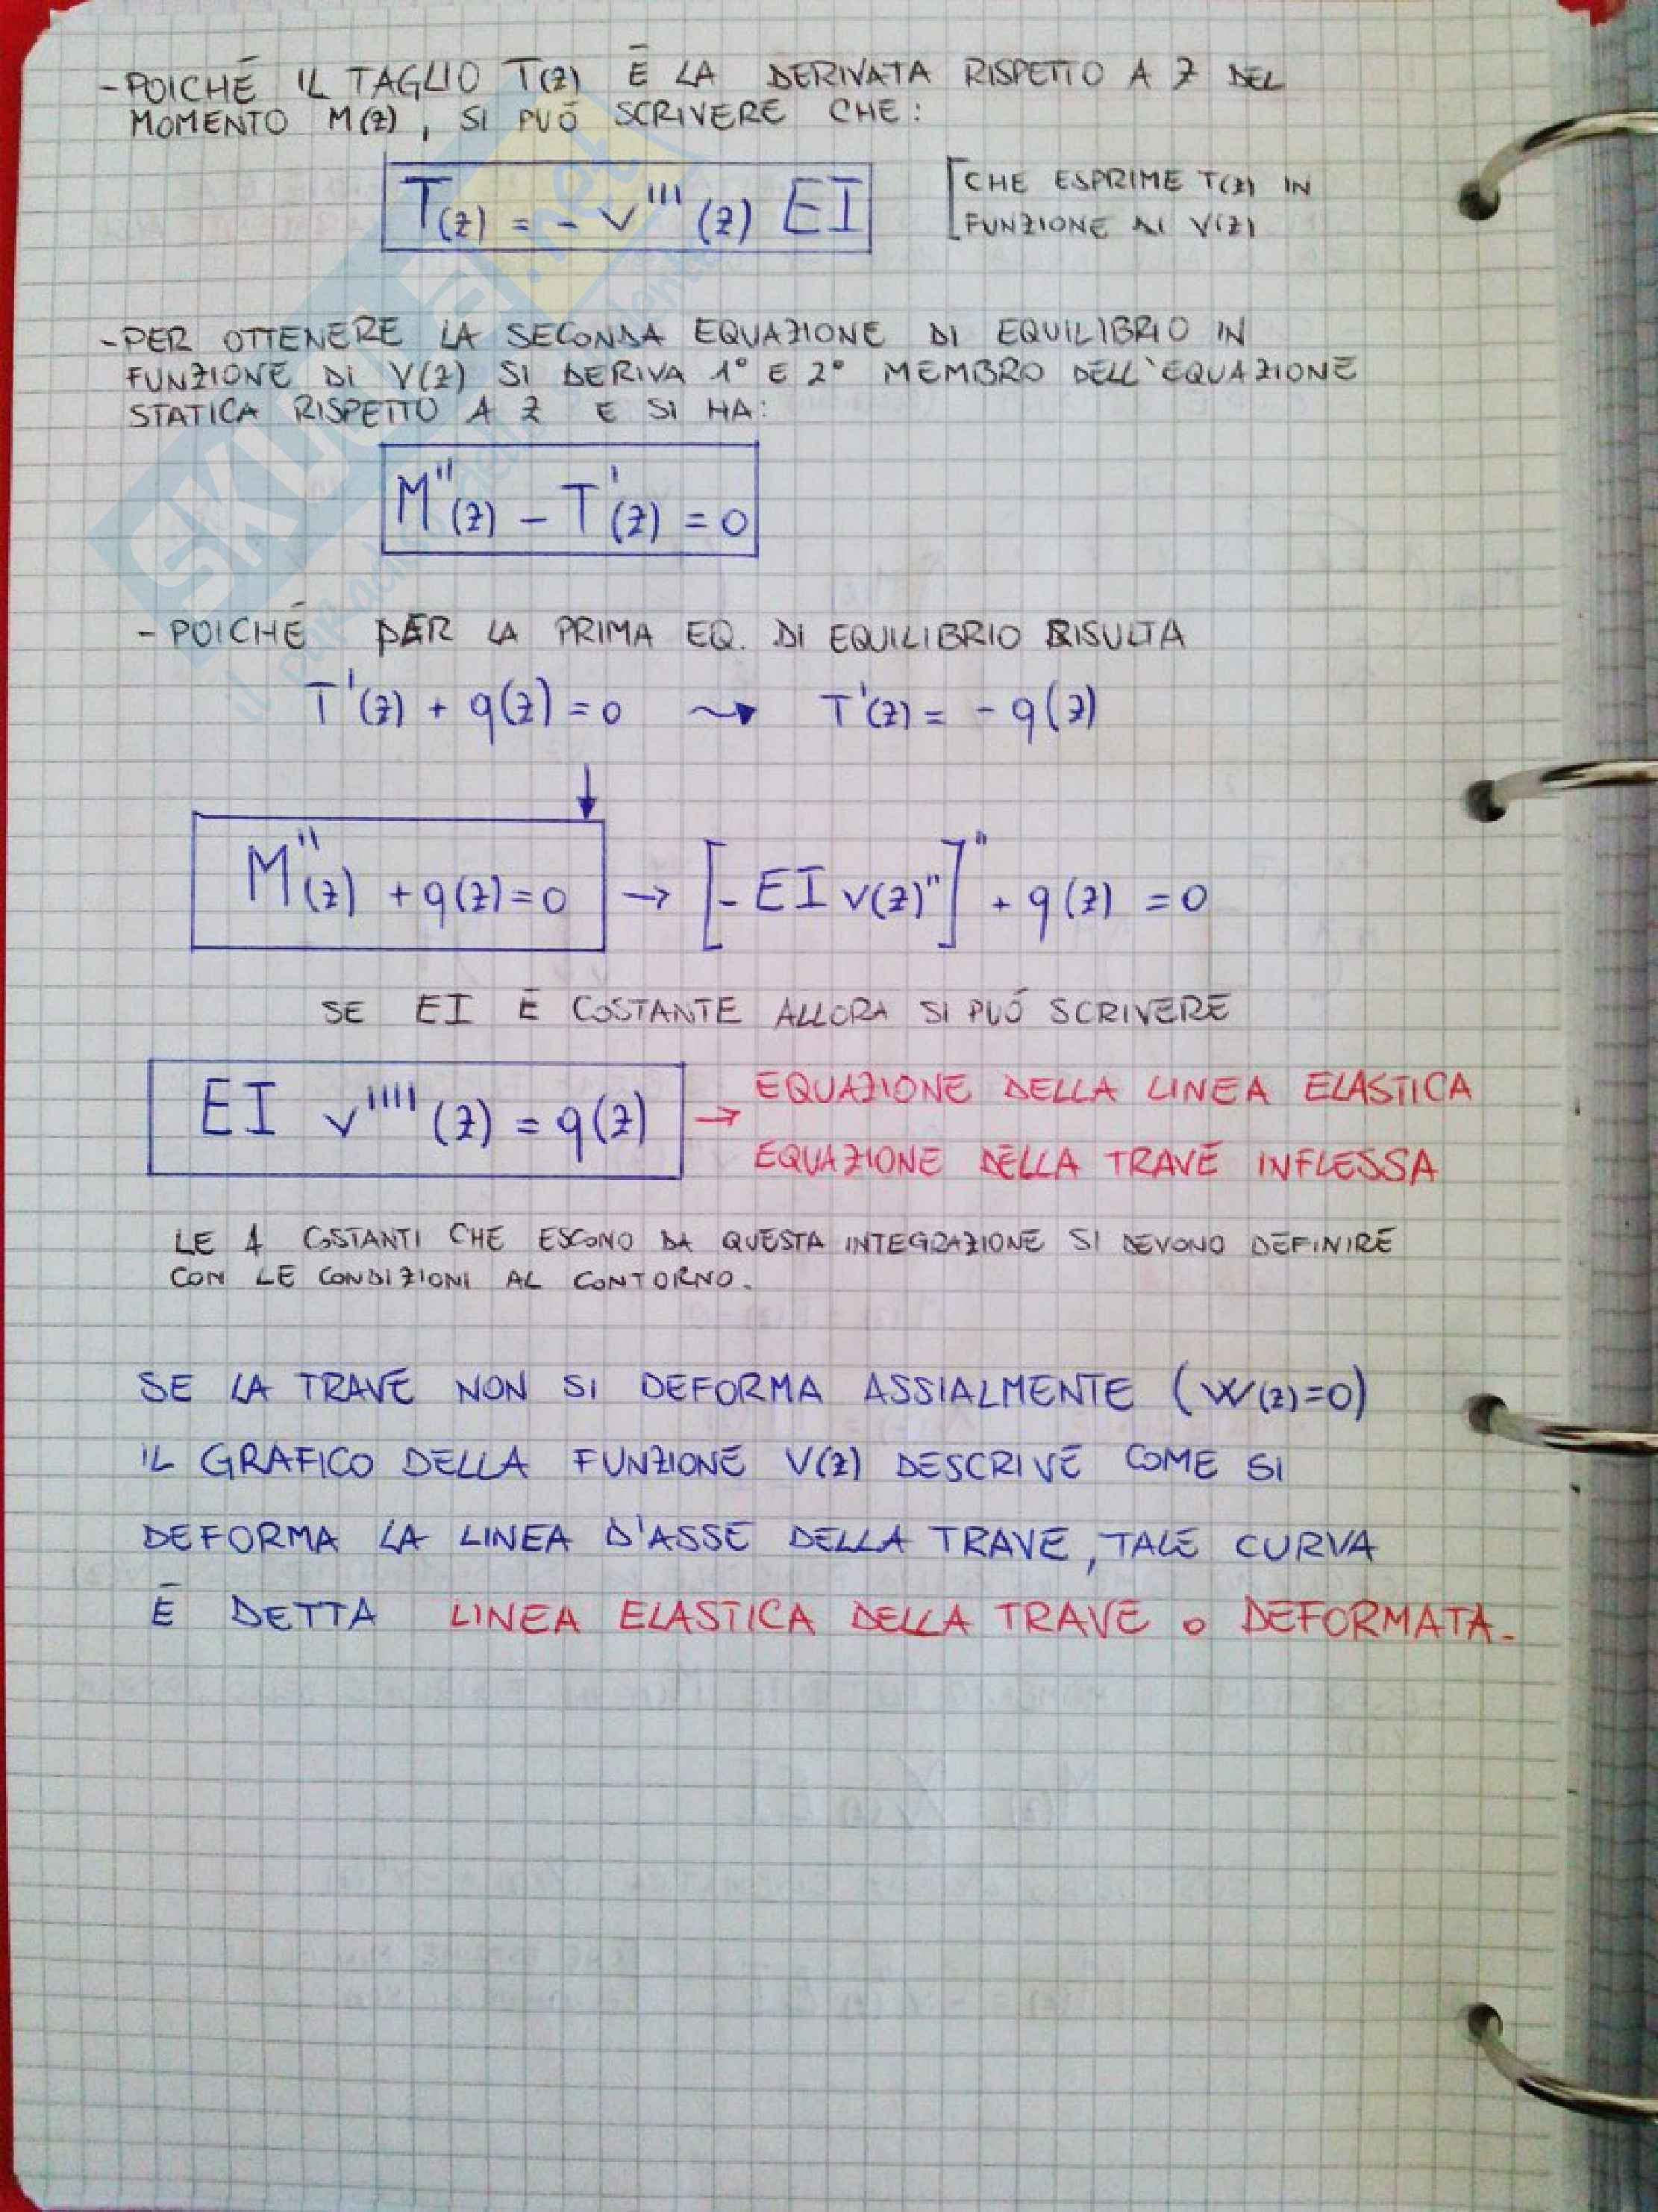 - POICHÉ IL TAGLIO T(z) È LA DERIVATA RISPETTO A z DEL
MOMENTO M(z), SI PUÓ SCRIVERE CHE:
T(z) = - v'''(z) EI
[CHE ESPRIME T(z) IN
FUNZIONE DI V(z)
- PER OTTENERE LA SECONDA EQUAZIONE DI EQUILIBRIO IN
FUNZIONE DI V(z) SI DERIVA 1° E 2° MEMBRO DELL'EQUAZIONE
STATICA RISPETTO A z E SI HA:
M''(z) - T'(z) = 0
- POICHÉ PER LA PRIMA EQ. DI EQUILIBRIO RISULTA
T'(z) + q(z) = 0 ⇝ T'(z) = - q(z)
↓
M''(z) + q(z) = 0 → [- EI v(z)'']'' + q(z) = 0
SE EI È COSTANTE ALLORA SI PUÓ SCRIVERE
EI v''''(z) = q(z) → EQUAZIONE DELLA LINEA ELASTICA
EQUAZIONE DELLA TRAVE INFLESSA
LE 4 COSTANTI CHE ESCONO DA QUESTA INTEGRAZIONE SI DEVONO DEFINIRE
CON LE CONDIZIONI AL CONTORNO.
SE LA TRAVE NON SI DEFORMA ASSIALMENTE (W(z)=0)
IL GRAFICO DELLA FUNZIONE V(z) DESCRIVE COME SI
DEFORMA LA LINEA D'ASSE DELLA TRAVE, TALE CURVA
È DETTA LINEA ELASTICA DELLA TRAVE O DEFORMATA.